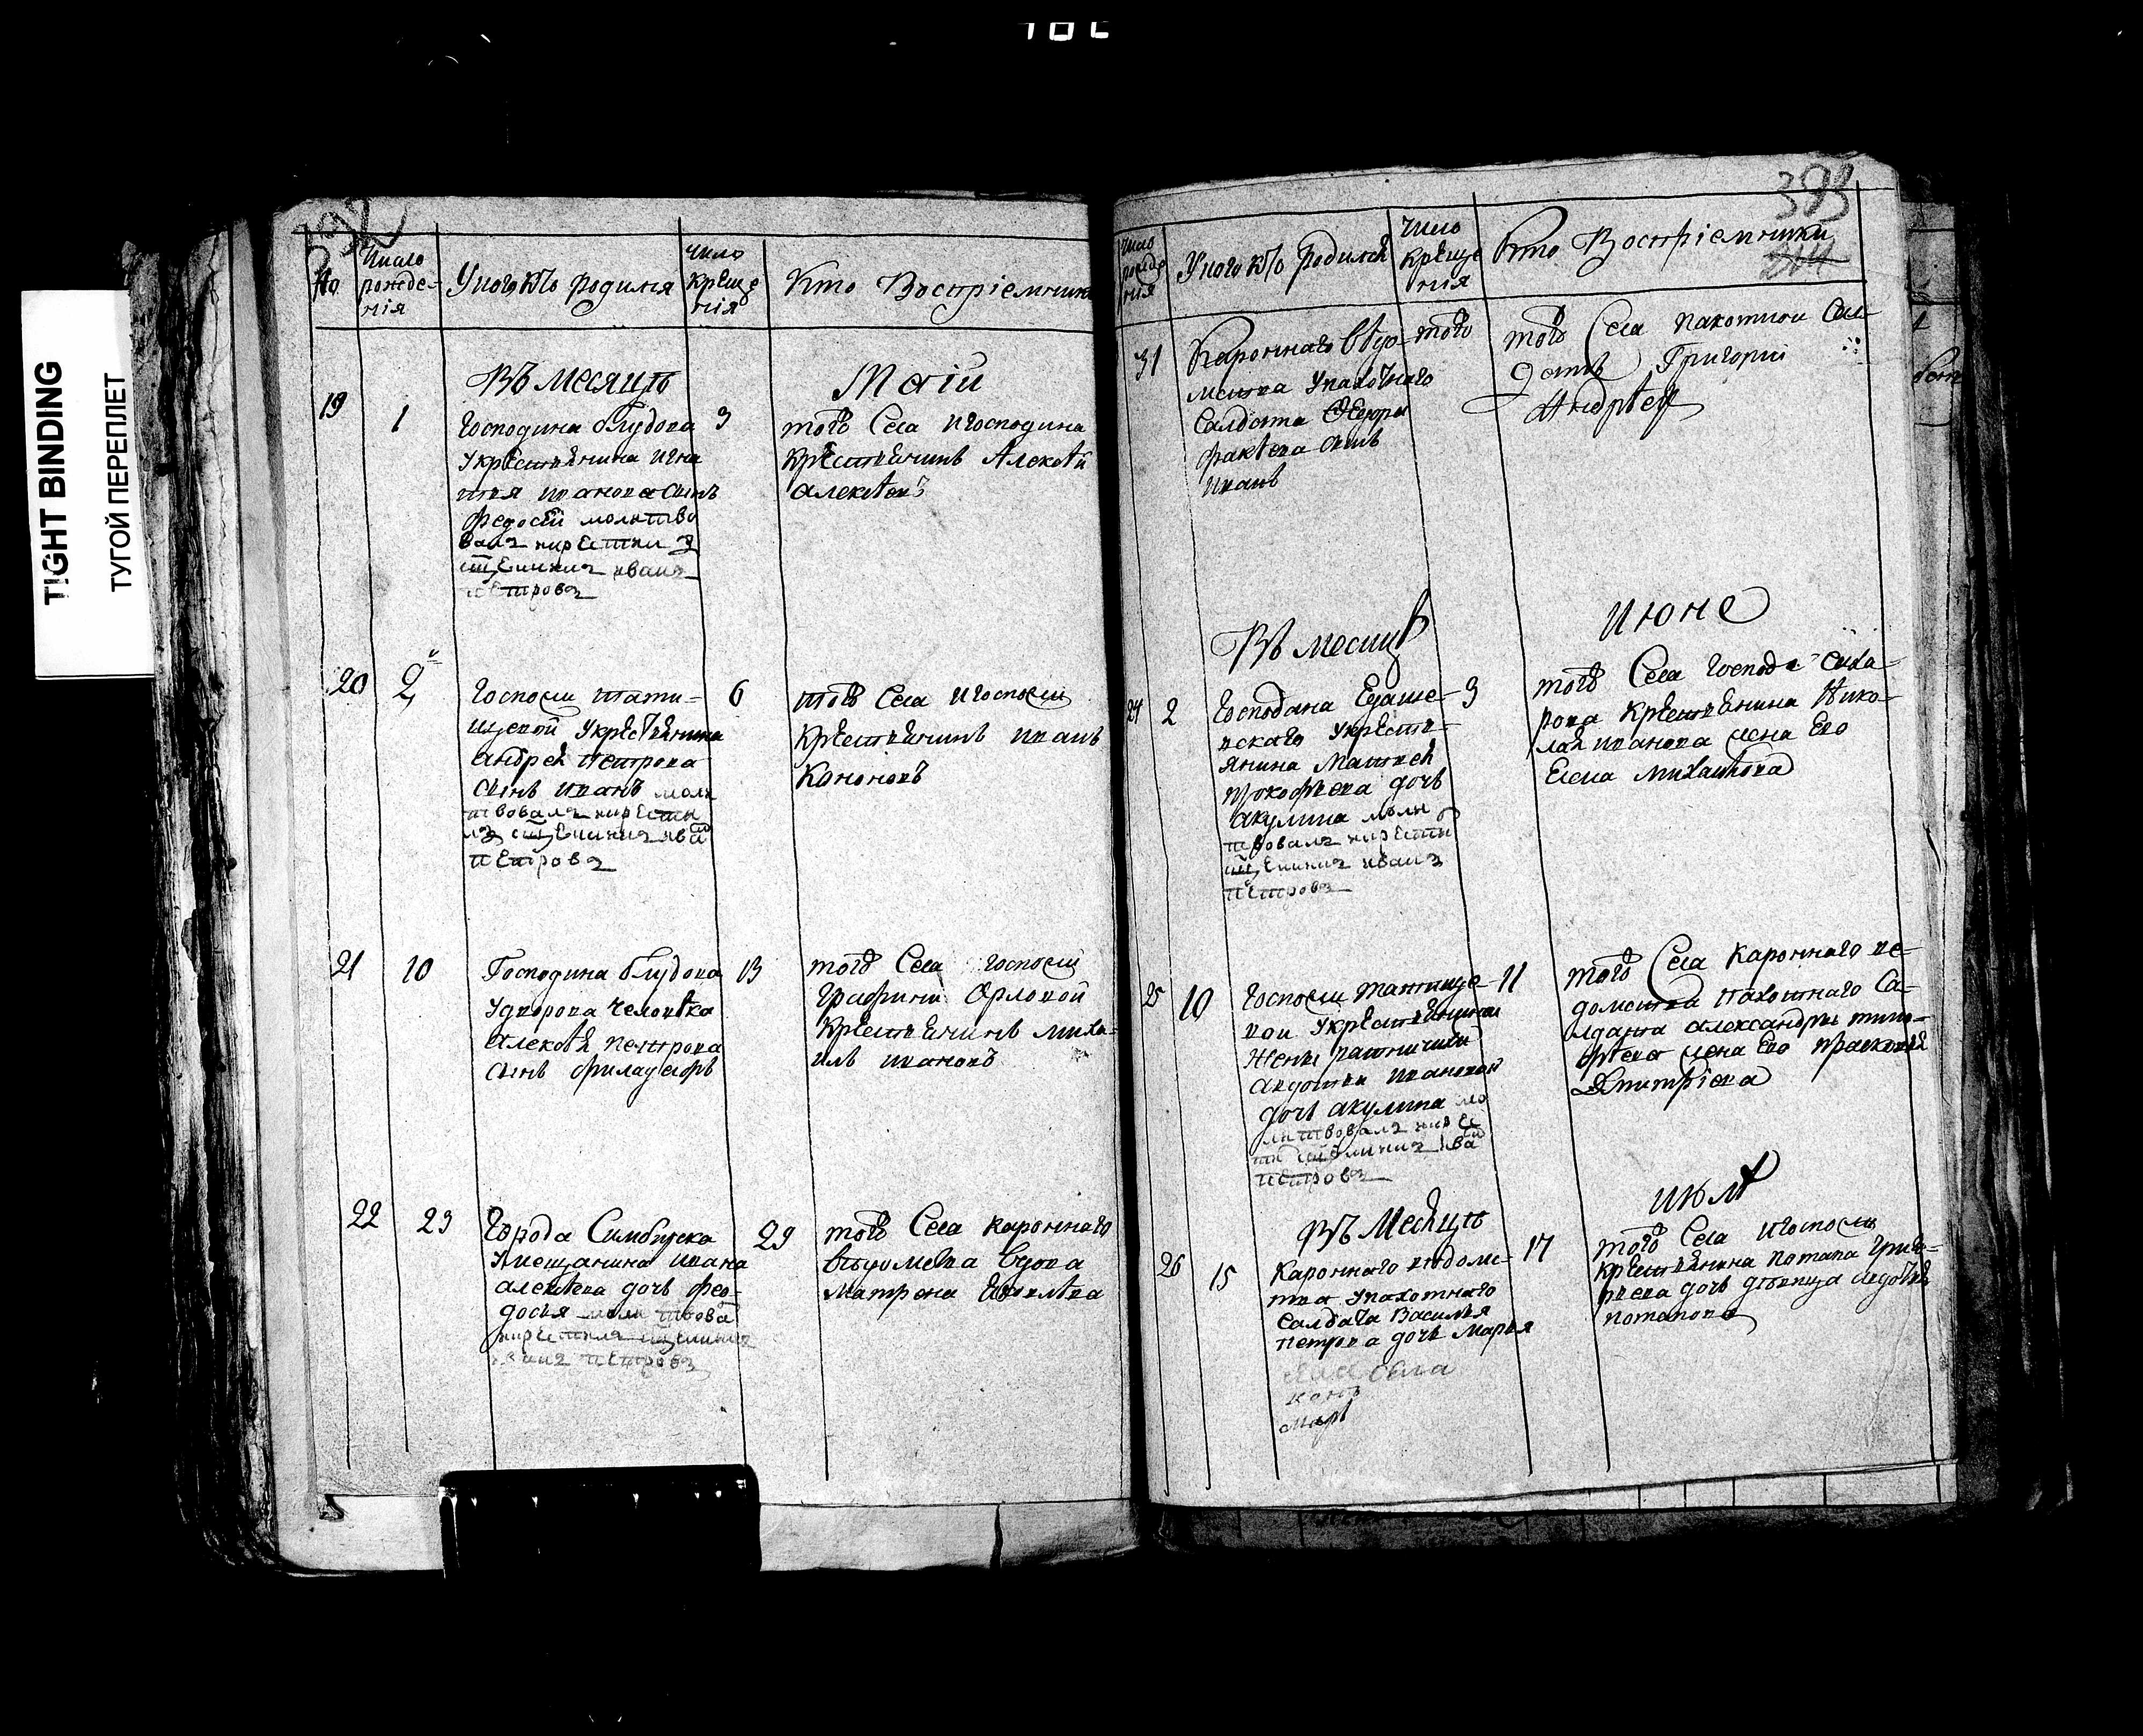 TIGHT BINDING
ТУГОЙ ПЕРЕПЛЕТ
392
№
Число рожде-
нія
У кого кто родился
число
креще
нія
Кто Воспріемники
Въ месяцѣ Маіи
19
1
Господина блудова
у крестьянина игна
тья иванова сынъ
федосей молитво
валъ и крестил
сщенникъ иванъ
петровъ
3
того Села и господина
крестьянинъ Алексѣй
алексѣевъ
20
2
Госпожи тати-
щевой у крестьянина
андрея петрова
сынъ иванъ моли
твовалъ и крести
лъ сщенникъ ива
петровъ
6
того Села и госпожи
крестьянинъ иванъ
Кононовъ
21
10
Господина блудова
у дворова человѣка
алексѣя петрова
сынъ филадельфъ
13
того Села госпожи
Графини Орловой
крестьянинъ миха-
илъ ивановъ
22
23
Города Симбирска
у мещанина ивана
алексѣева дочь фео-
досья молитвова
и крестилъ сщенникъ
иванъ петровъ
29
того Села каронного
вѣдомства вдова
матрена
393
число
рожде
нія
У кого кто родился
число
креще
нія
Кто Воспріемники
31
Каронного вѣдо-
мства у пахотного
Салдата Федора
сынъ
иванъ
того
того Села пахотной Сал-
датъ Григорій
Андрѣевъ
Въ месяцѣ июне
24
2
Господина
вскаго у крестъ-
янина Матвея
прокофьева дочь
акулина моли
твовалъ и крести
сщенникъ иванъ
петровъ
3
того Села господа
рова крестьянина Нико-
лая иванова жена Его
Елена михайлова
25
10
Госпожи татище-
вой у крестьянина
жены ратничихи
авдотьи ивановой
дочь акулина мо
литвовалъ и кре
сти сщенникъ ива
петровъ
11
того Села каронного ве-
домства пахотного Са-
лдата александры тимо-
фѣева жена Его прасковья
Дмитріева
Въ Месяцѣ июлѣ
26
15
Каронного вѣдомс-
тва у пахотного
Салдата Василья
петрова дочь Марья
17
того Села и госпожи
крестьянина потапа григо-
рьева дочь девица авдотья
потапова